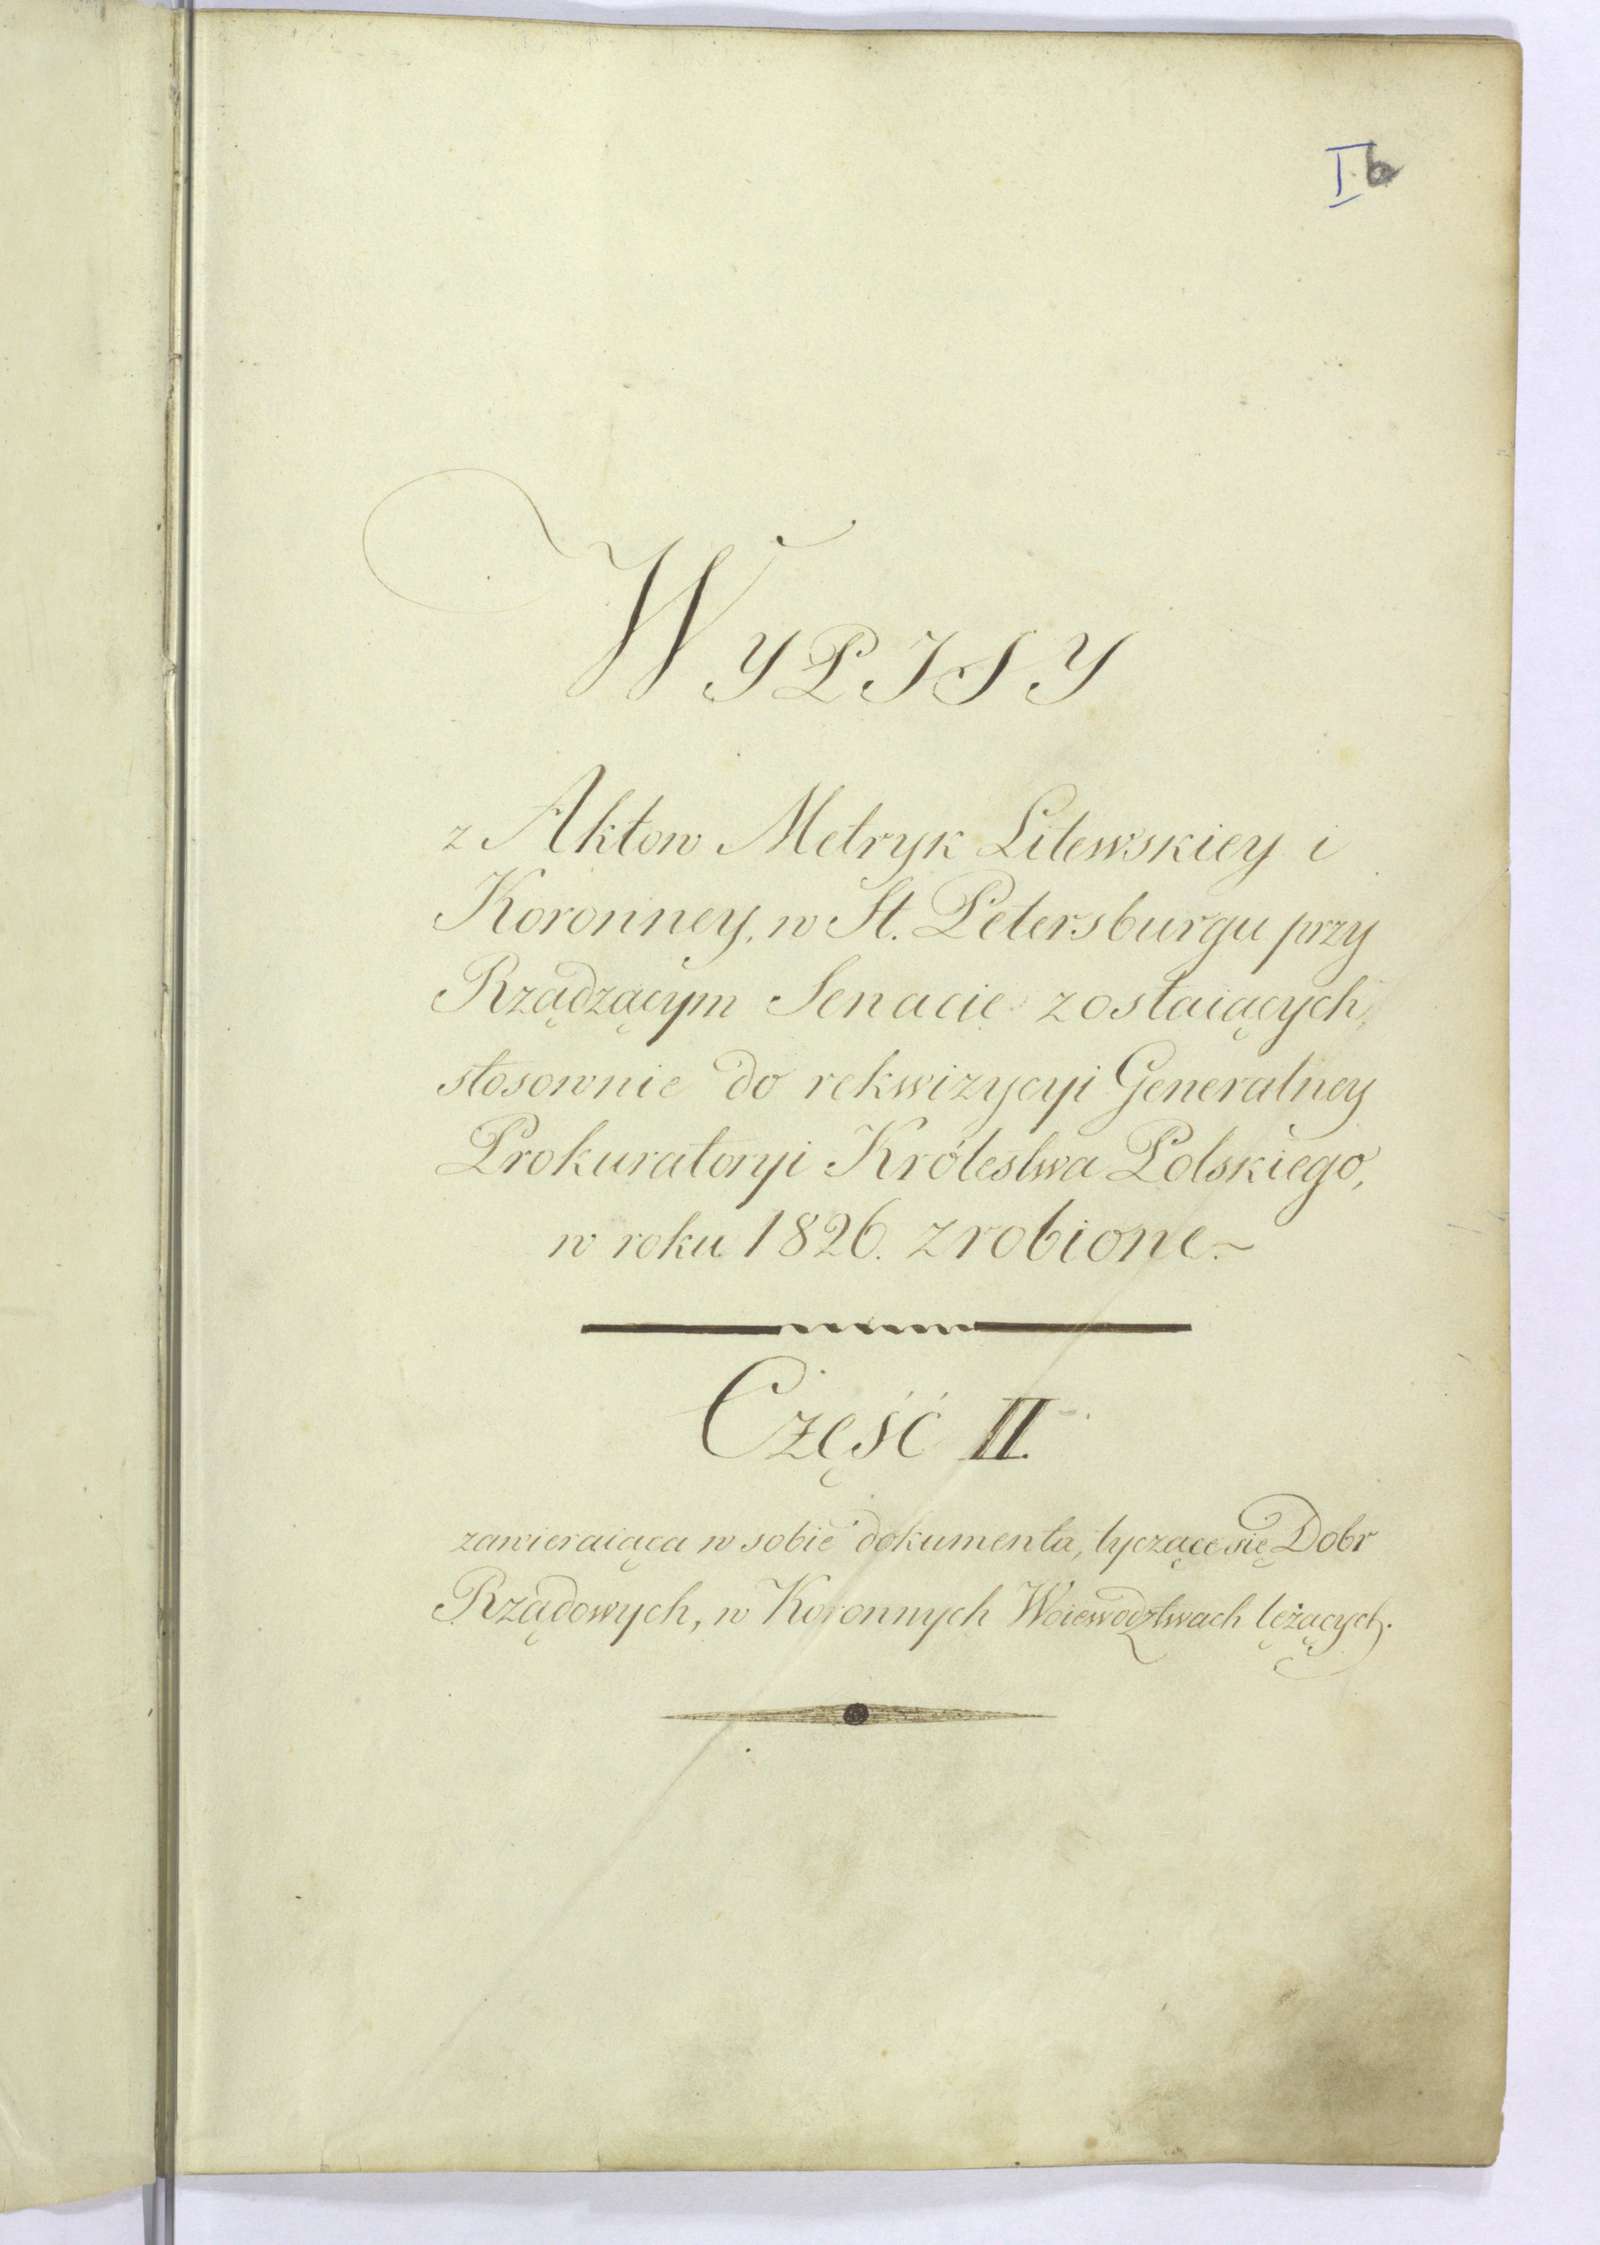 I.b
WYPISY
z Aktow Metryk Litewskiey i
Koronney, w St. Petersburgu przy
Rządzącym Senacie zostaiących,
stosownie do rekwizycyi Generalney
Prokuratoryi Królestwa Polskiego,
w roku 1826. zrobione.~
Część II.
zawieraiąca w sobie dokumenta, tyczące się Dobr
Rządowych, w Koronnych Woiewodztwach leżących.